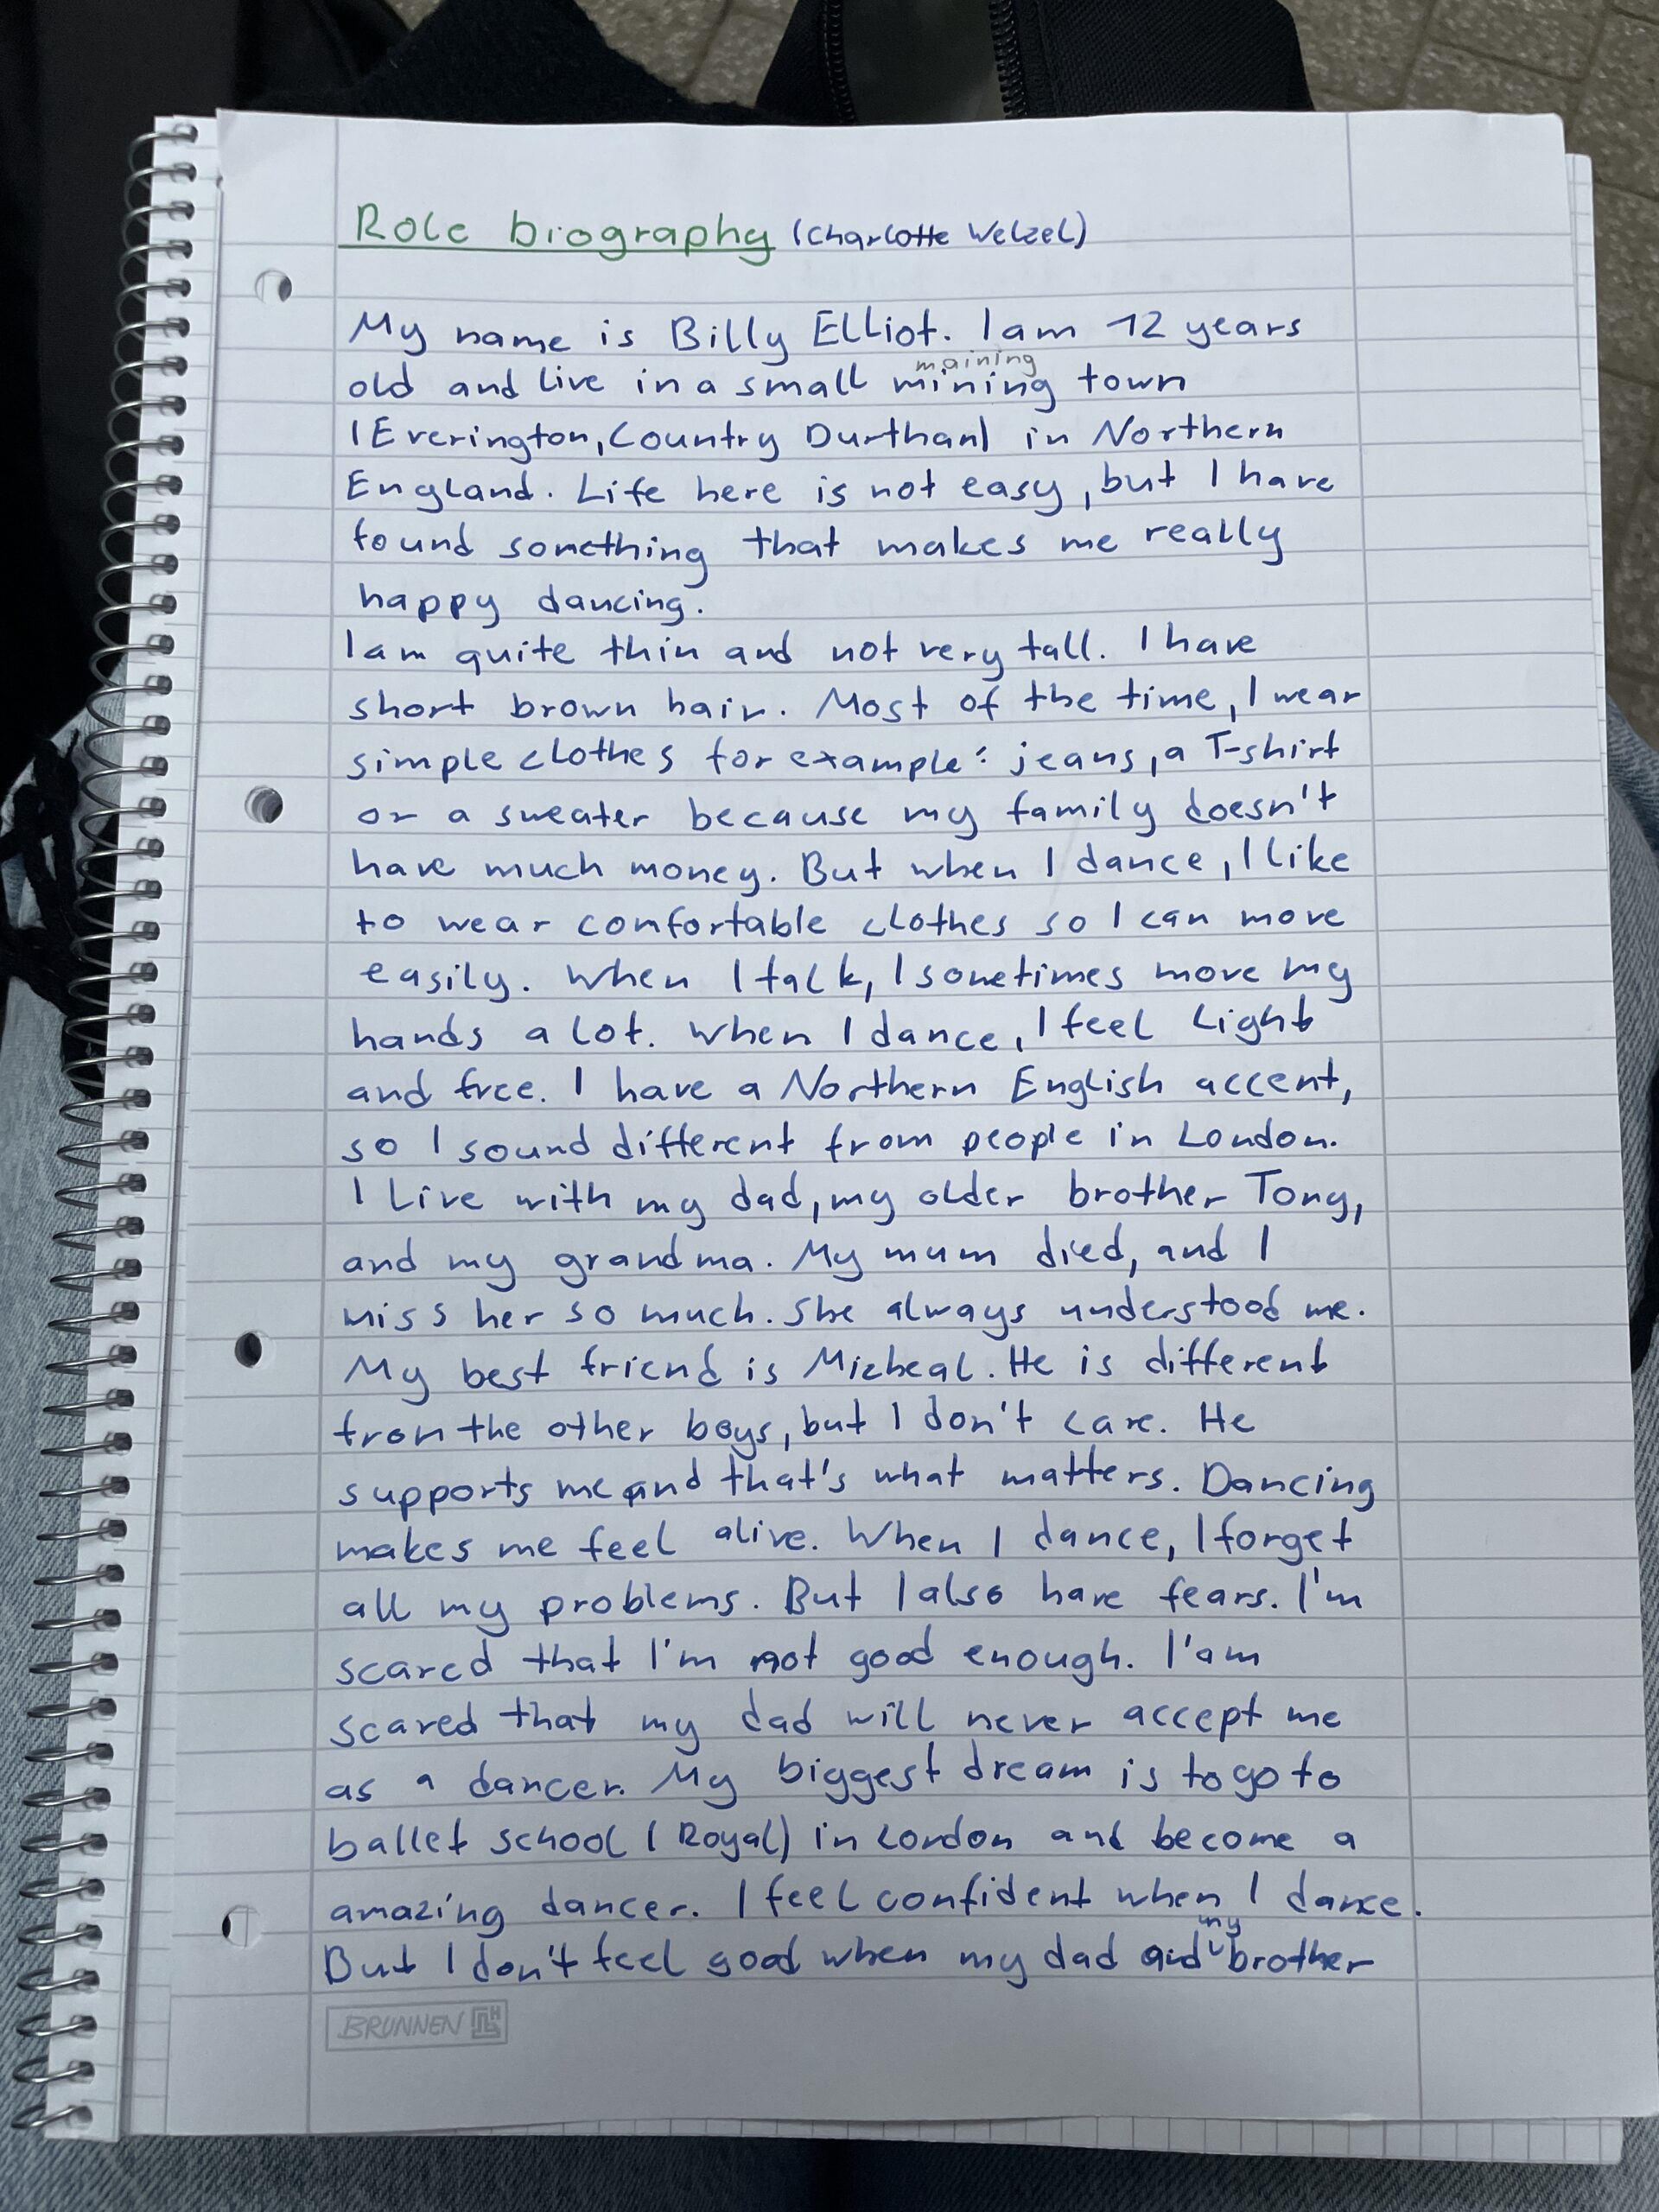 Role biography (Charlotte Welzel)
My name is Billy Elliot. I am 12 years
maining
old and live in a small mining town
(Everington, Country Durthan) in Northern
England. Life here is not easy, but I have
found something that makes me really
happy dancing.
I am quite thin and not very tall. I have
short brown hair. Most of the time, I wear
simple clothes for example: jeans, a T-shirt
or a sweater because my family doesn't
have much money. But when I dance, I like
to wear comfortable clothes so I can move
easily. When I talk, I sometimes move my
hands a lot. When I dance, I feel light
and free. I have a Northern English accent,
so I sound different from people in London.
I live with my dad, my older brother Tony,
and my grandma. My mum died, and I
miss her so much. She always understood me.
My best friend is Micheal. He is different
from the other boys, but I don't care. He
supports me and that's what matters. Dancing
makes me feel alive. When I dance, I forget
all my problems. But I also have fears. I'm
scared that I'm not good enough. I'am
scared that my dad will never accept me
as a dancer. My biggest dream is to go to
ballet school (Royal) in London and become a
amazing dancer. I feel confident when I dance.
my
But I don't feel good when my dad and brother
BRUNNEN